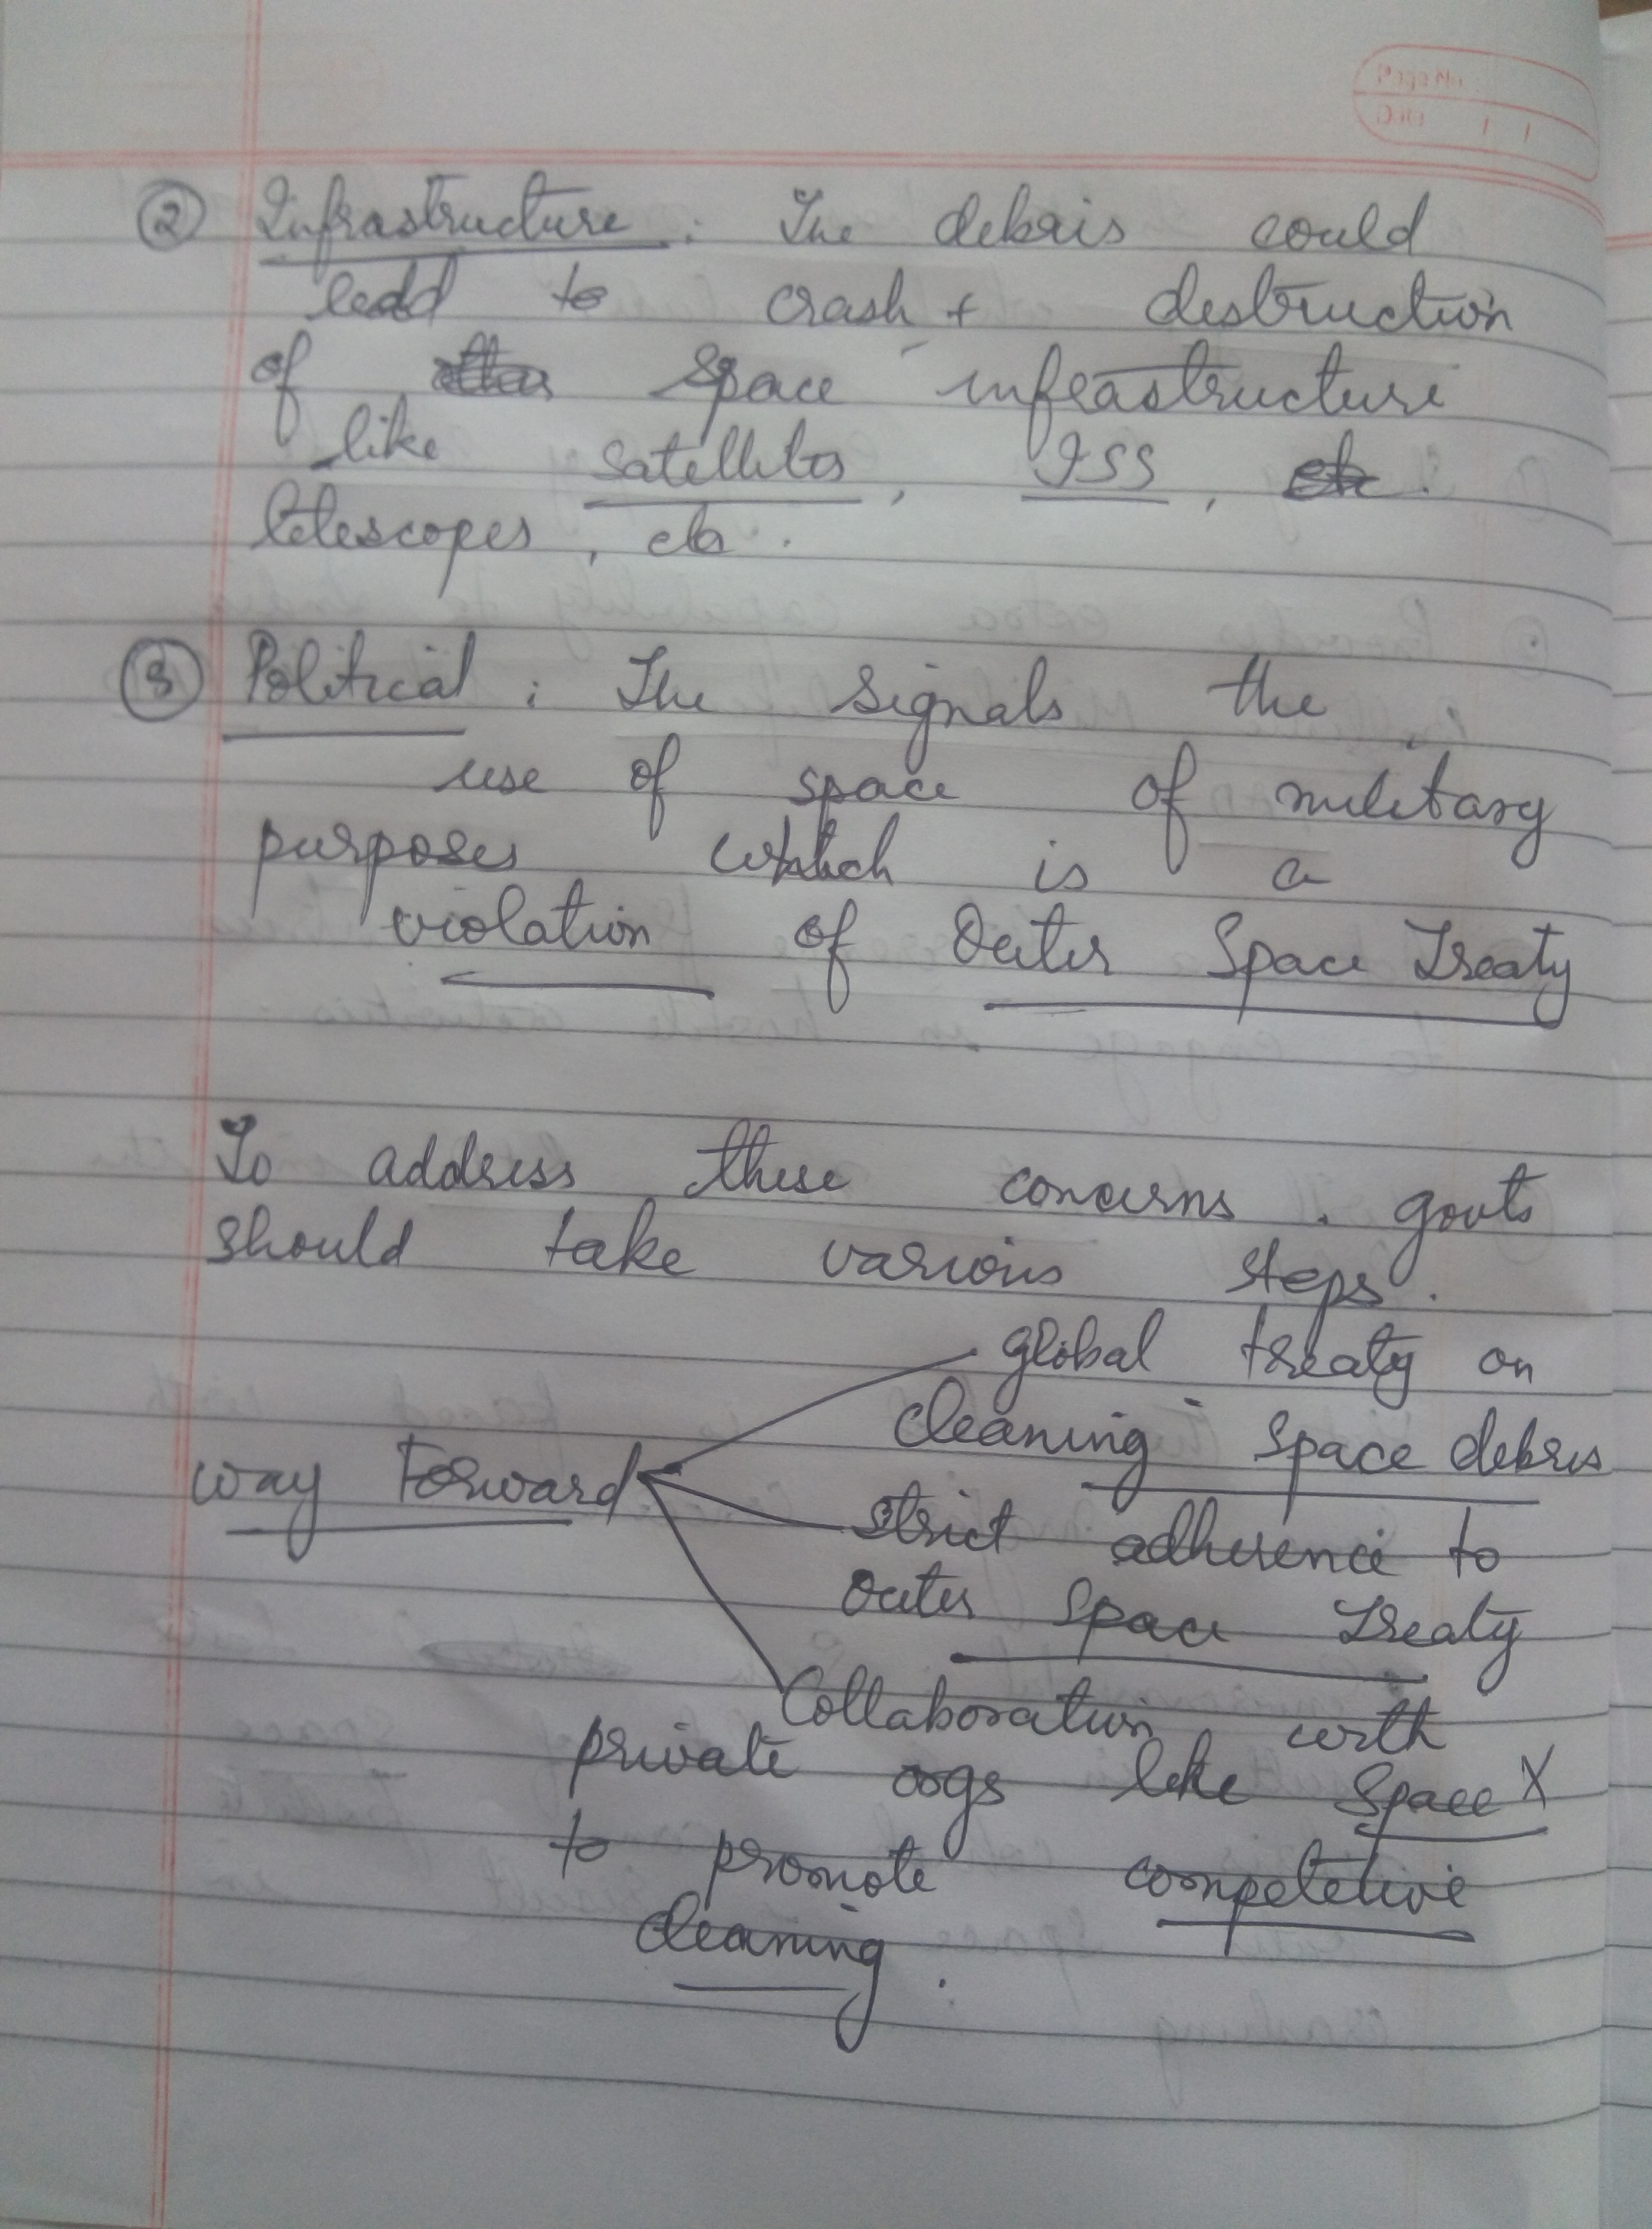 ② Infrastructure : The debris could
lead to crash + destruction
of space infrastructure
like satellites, ISS,
telescopes, etc.
③ Political : The signals the
use of space of military
purposes which is a
violation of Outer Space Treaty
To address these concerns, govts
should take various steps.
global treaty on
cleaning space debris
way Forward
strict adherence to
Outer Space Treaty
Collaboration with
private orgs like Space X
to promote competetive
cleaning.